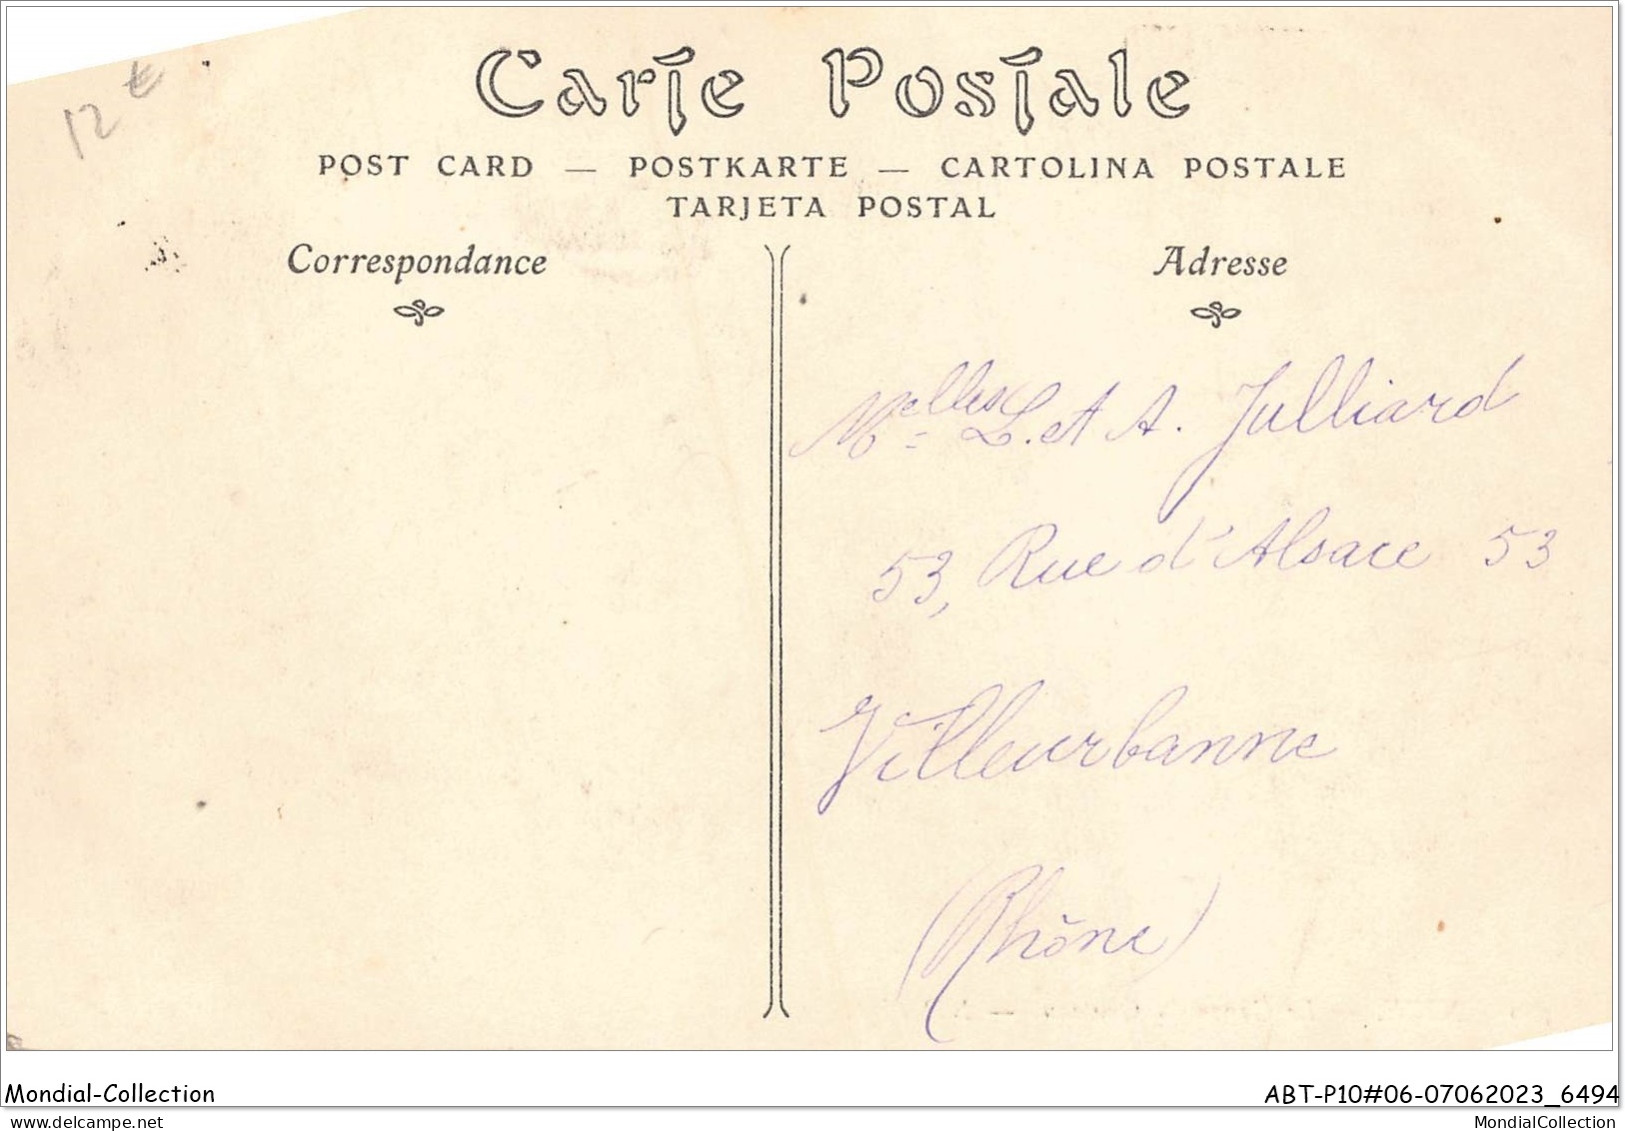 12 €
Carte Postale
POST CARD — POSTKARTE — CARTOLINA POSTALE
TARJETA POSTAL
Correspondance
Adresse
Melles L. et A. Julliard
53, Rue d'Alsace 53
Villeurbanne
(Rhône)
Mondial-Collection
ABT-P10#06-07062023_6494
delcampe.net
MondialCollection